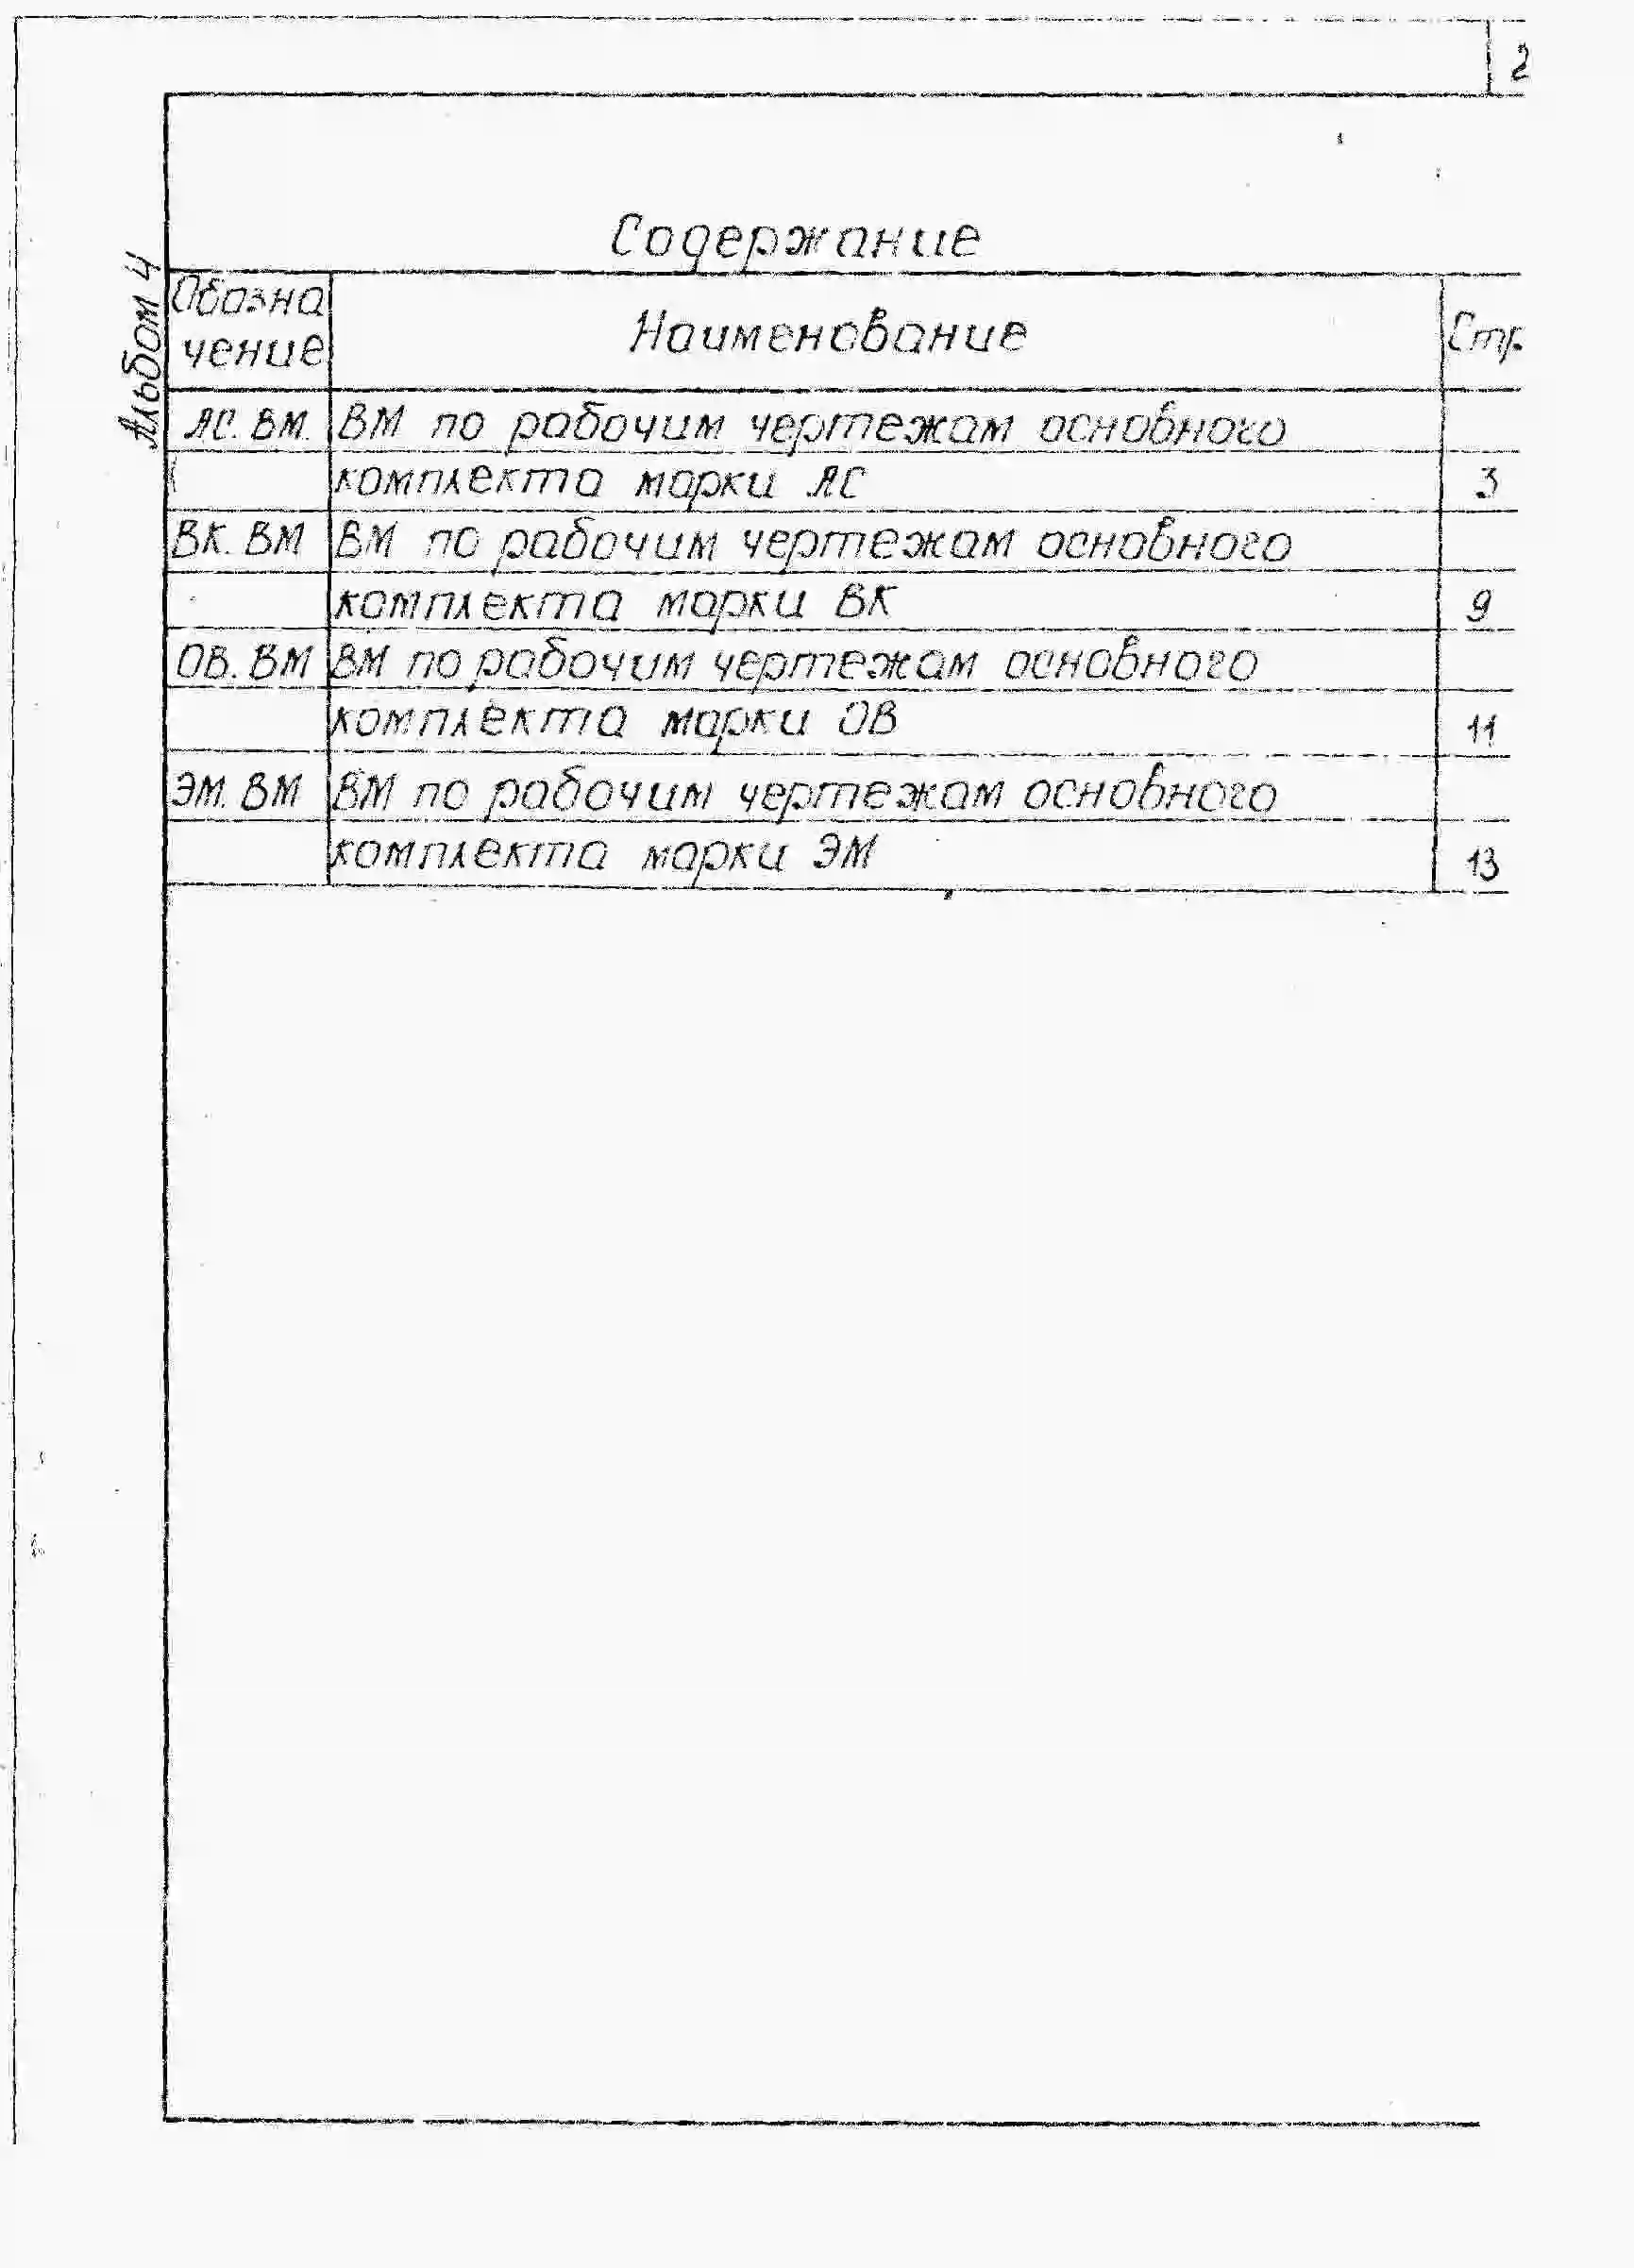 2
Альбом 4
Содержание
Обозна
чение
Наименование
Стр.
АС. ВМ.
ВМ по рабочим чертежам основного
комплекта марки АС
3
ВК. ВМ
ВМ по рабочим чертежам основного
комплекта марки ВК
9
ОВ. ВМ
ВМ по рабочим чертежам основного
комплекта марки ОВ
11
ЭМ. ВМ
ВМ по рабочим чертежам основного
комплекта марки ЭМ
13